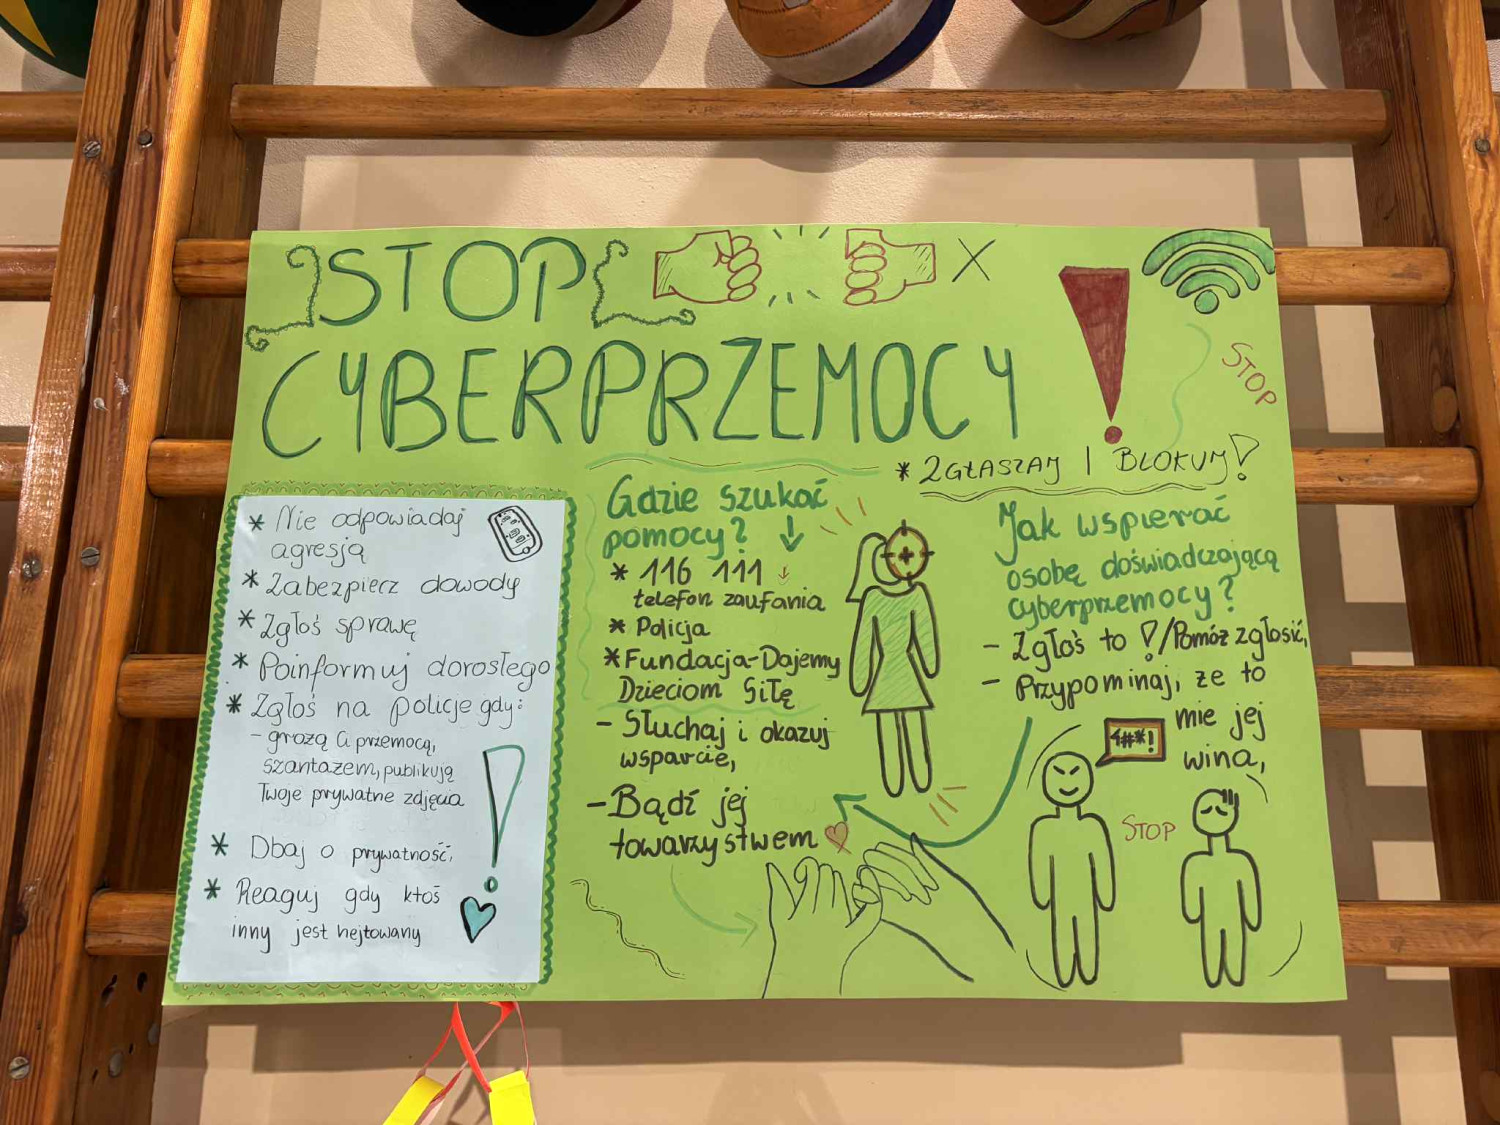 STOP
CYBERPRZEMOCY !
STOP
* ZGŁASZAM I BLOKUJ!
* Nie odpowiadaj
agresją
* Zabezpiecz dowody
* Zgłoś sprawę
* Poinformuj dorosłego
* Zgłoś na policję gdy:
- grożą Ci przemocą,
szantażem, publikują
Twoje prywatne zdjęcia
* Dbaj o prywatność,
* Reaguj gdy ktoś
inny jest hejtowany
!
Gdzie szukać
pomocy?
* 116 111
telefon zaufania
* Policja
* Fundacja-Dajemy
Dzieciom Siłę
- Słuchaj i okazuj
wsparcie,
- Bądź jej
towarzystwem
Jak wspierać
osobę doświadczającą
cyberprzemocy?
- Zgłoś to !/Pomóż zgłosić,
- Przypominaj, że to
nie jej
wina,
#*!
STOP